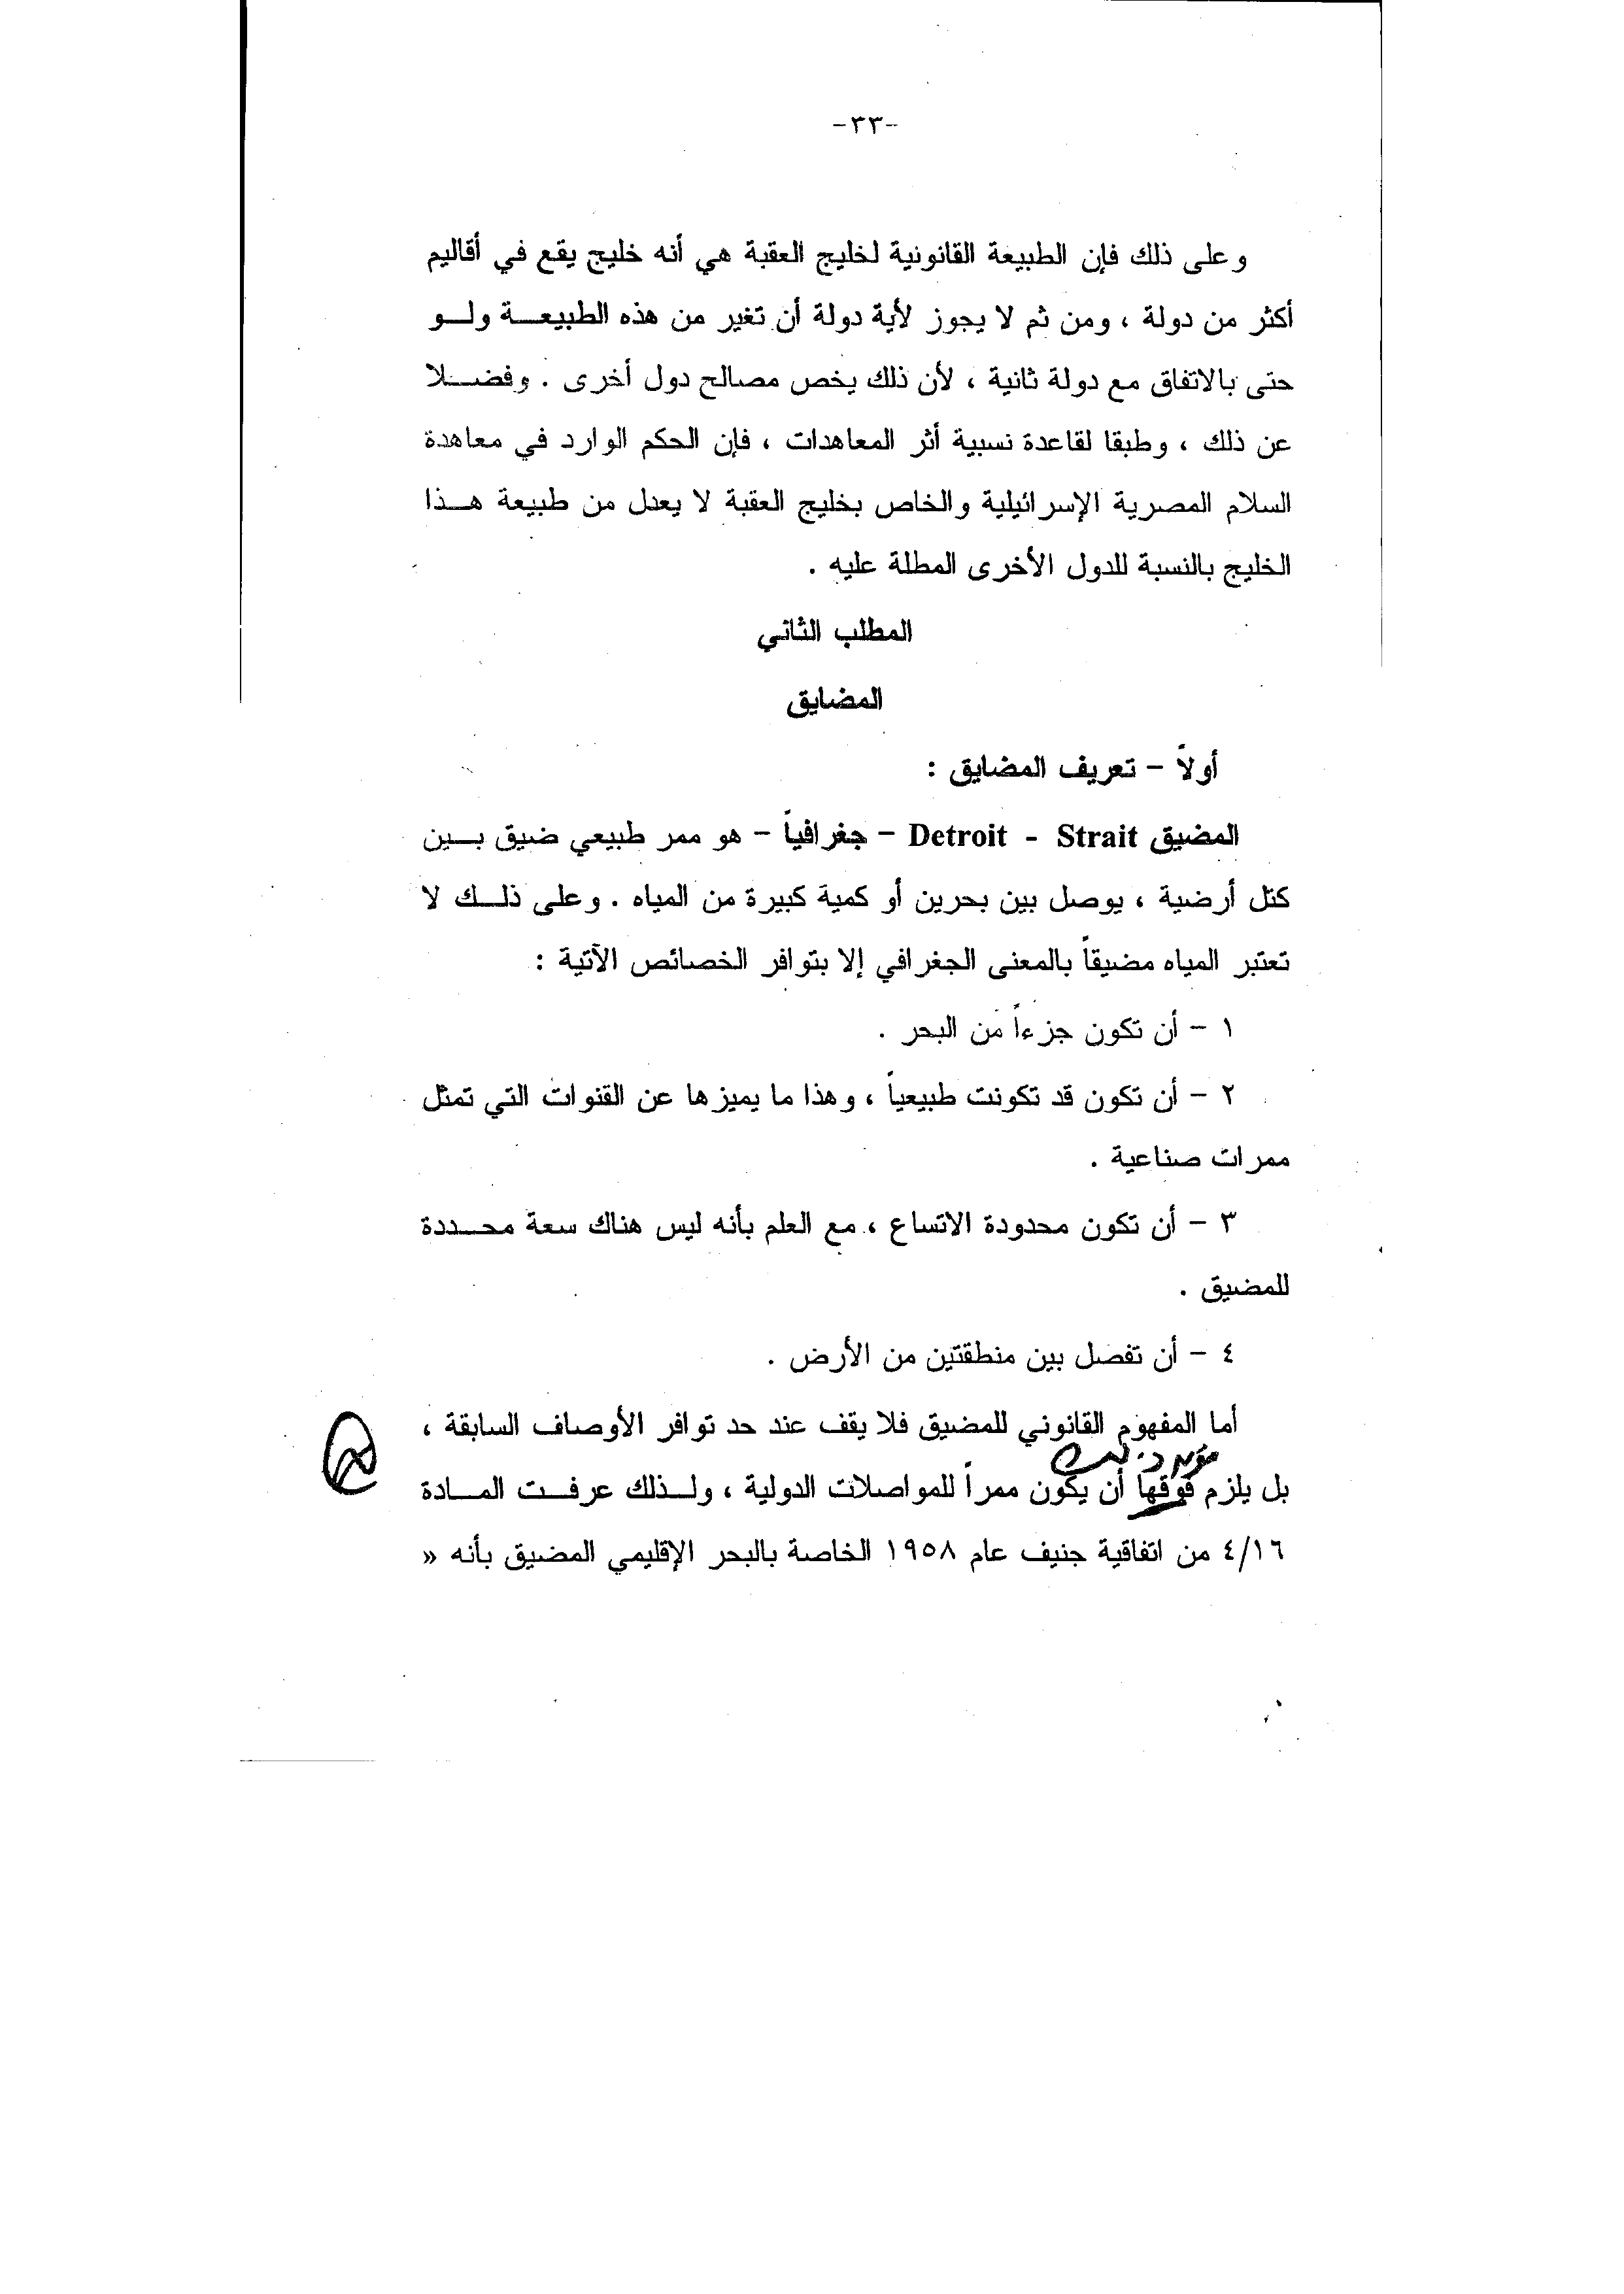 -٣٣-
وعلى ذلك فإن الطبيعة القانونية لخليج العقبة هي أنه خليج يقع في أقاليم
أكثر من دولة ، ومن ثم لا يجوز لأية دولة أن تغير من هذه الطبيعة ولو
حتى بالاتفاق مع دولة ثانية ، لأن ذلك يخص مصالح دول أخرى . وفضلا
عن ذلك ، وطبقا لقاعدة نسبية أثر المعاهدات ، فإن الحكم الوارد في معاهدة
السلام المصرية الإسرائيلية والخاص بخليج العقبة لا يعدل من طبيعة هذا
الخليج بالنسبة للدول الأخرى المطلة عليه .
المطلب الثاني
المضايق
أولاً – تعريف المضايق :
المضيق Detroit - Strait – جغرافياً – هو ممر طبيعي ضيق بين
كتل أرضية ، يوصل بين بحرين أو كمية كبيرة من المياه . وعلى ذلك لا
تعتبر المياه مضيقاً بالمعنى الجغرافي إلا بتوافر الخصائص الآتية :
١ – أن تكون جزءاً من البحر .
٢ – أن تكون قد تكونت طبيعياً ، وهذا ما يميزها عن القنوات التي تمثل
ممرات صناعية .
٣ – أن تكون محدودة الاتساع ، مع العلم بأنه ليس هناك سعة محددة
للمضيق .
٤ – أن تفصل بين منطقتين من الأرض .
أما المفهوم القانوني للمضيق فلا يقف عند حد توافر الأوصاف السابقة ،
بل يلزم فوقها أن يكون ممراً للمواصلات الدولية ، ولذلك عرفت المادة
٤/١٦ من اتفاقية جنيف عام ١٩٥٨ الخاصة بالبحر الإقليمي المضيق بأنه «